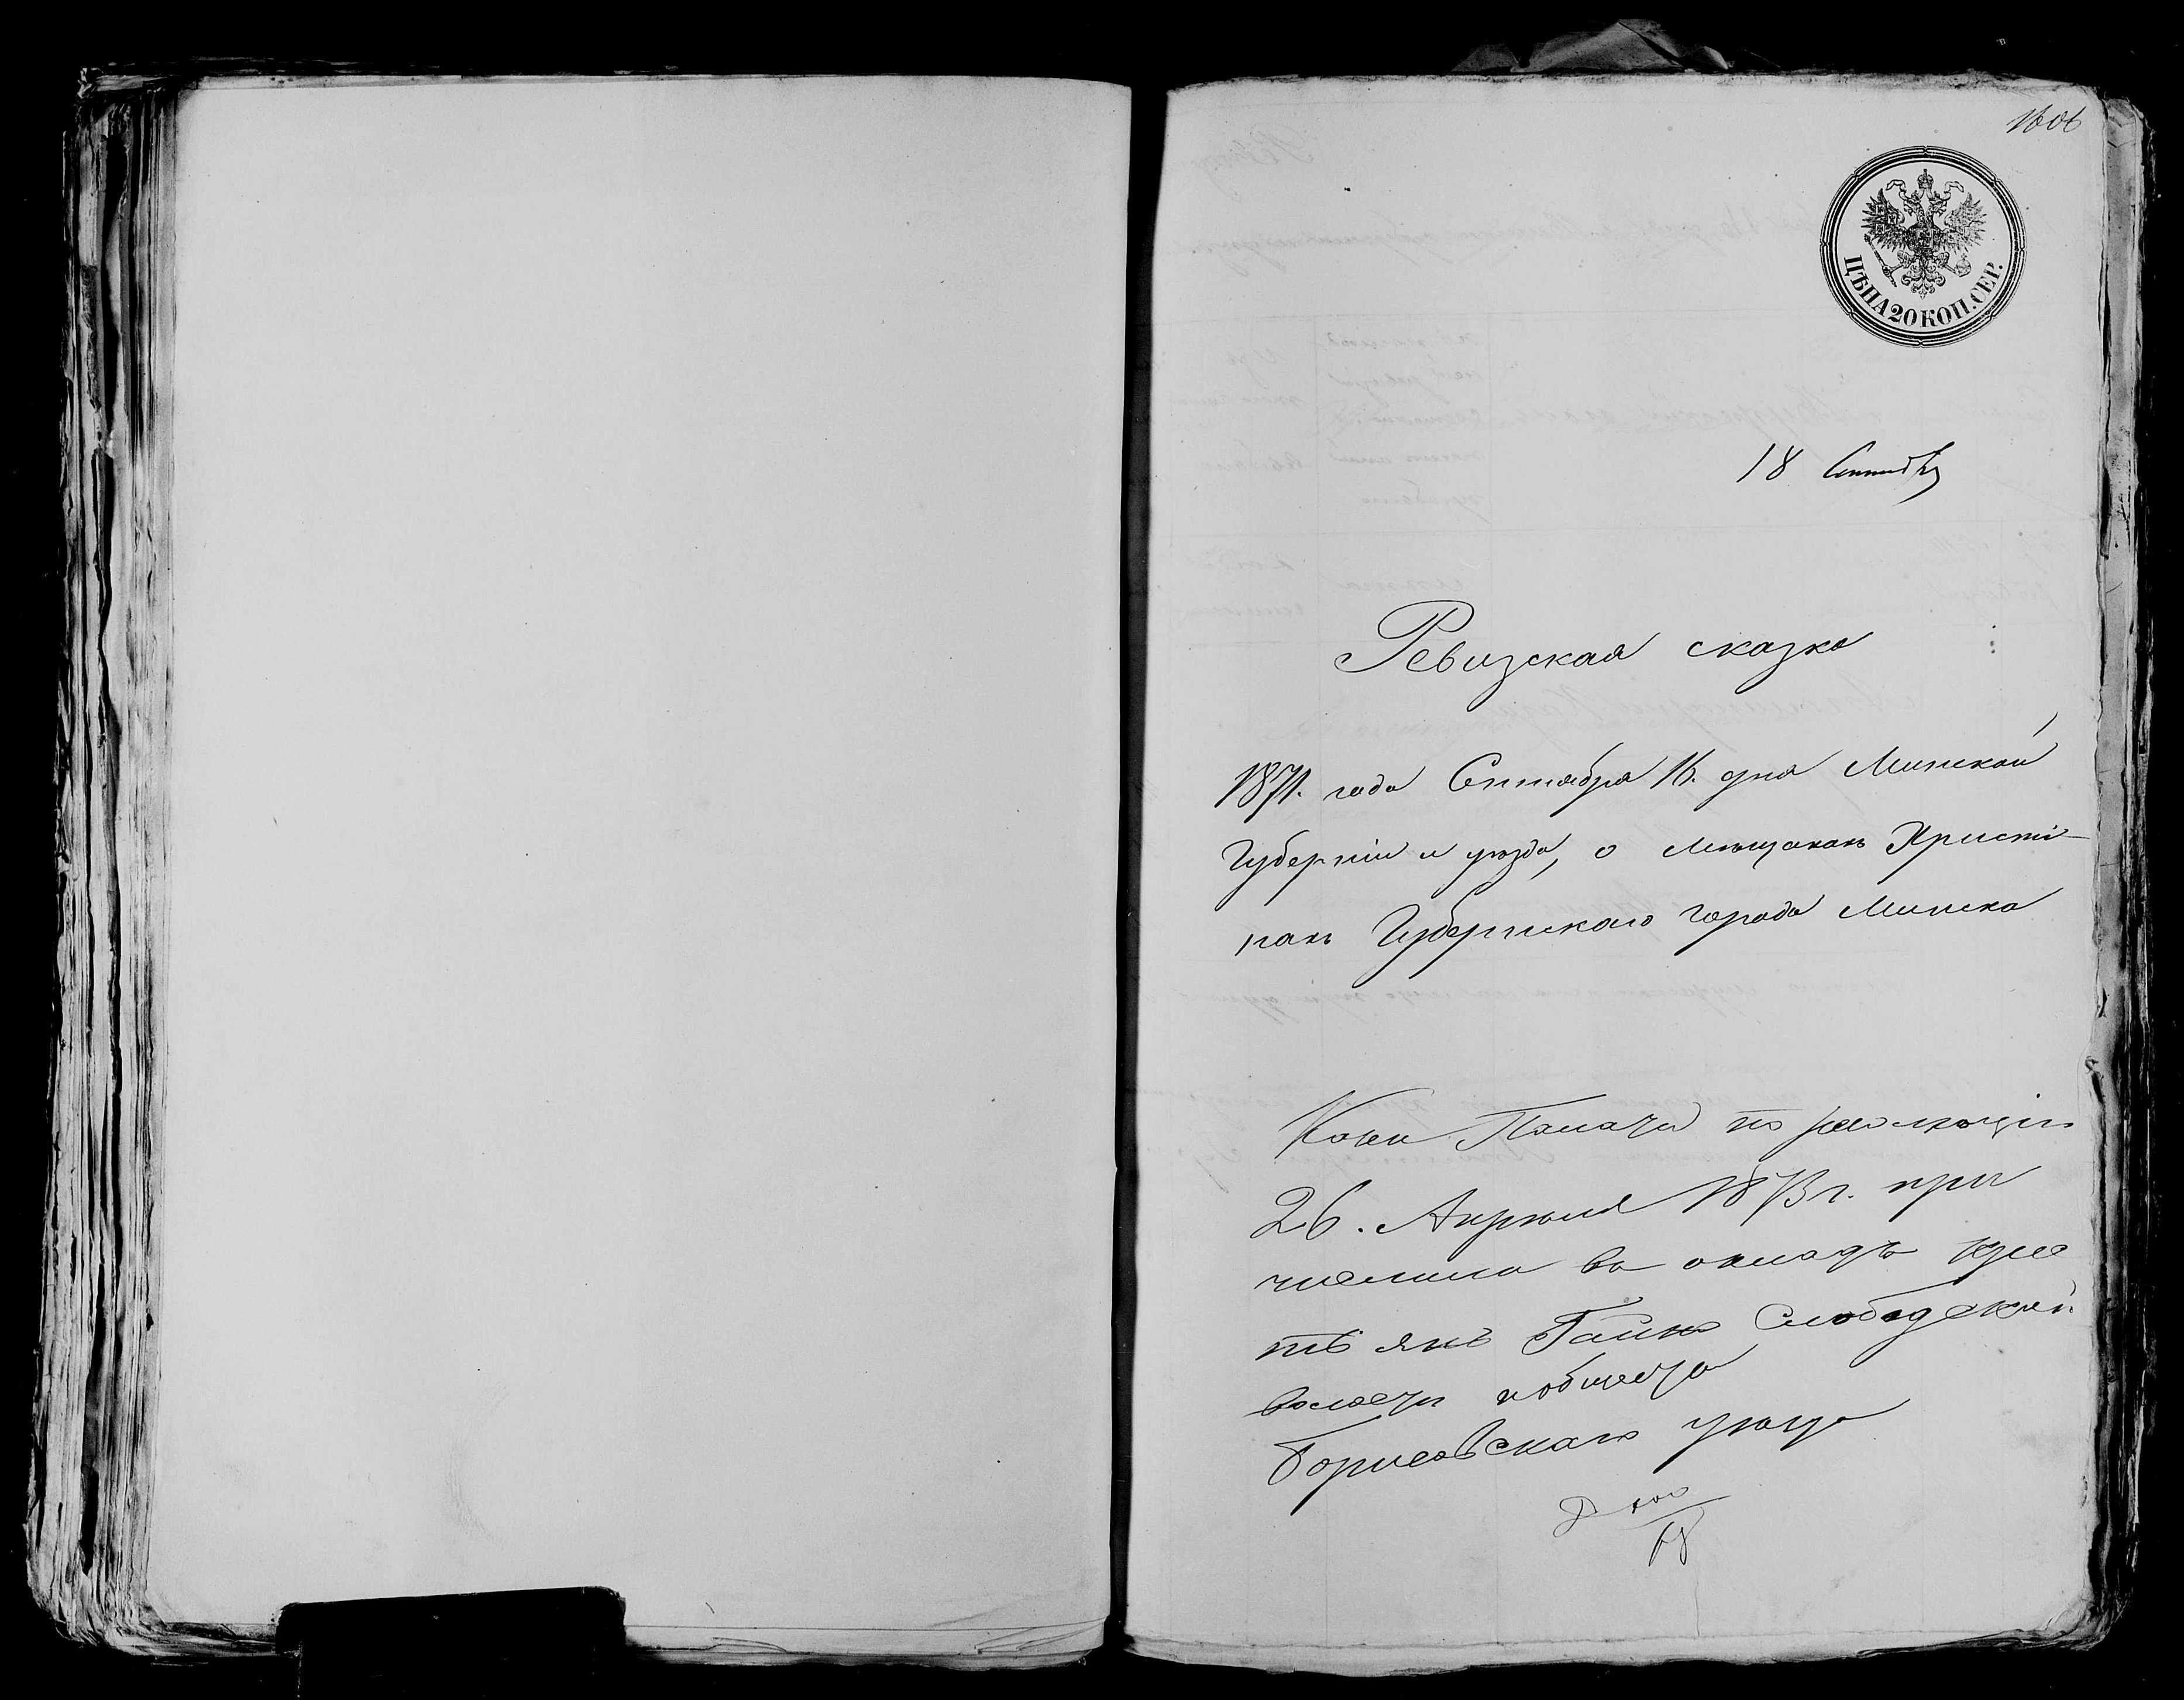 1606
ЦѢНА 20 КОП. СЕР.
18 Сентяб
Ревизская сказка
1871. года Сентября 16. дня Минской
Губерніи и уѣзда, о мѣщанахъ Христі-
нахъ Губернскаго города Минска
Каз. Палаты по резолюціи
26. Апрѣля 1873 г. при
числила въ окладъ крес
тьянъ Гайно Слободской
волости и общества
Борисовскаго уѣзда